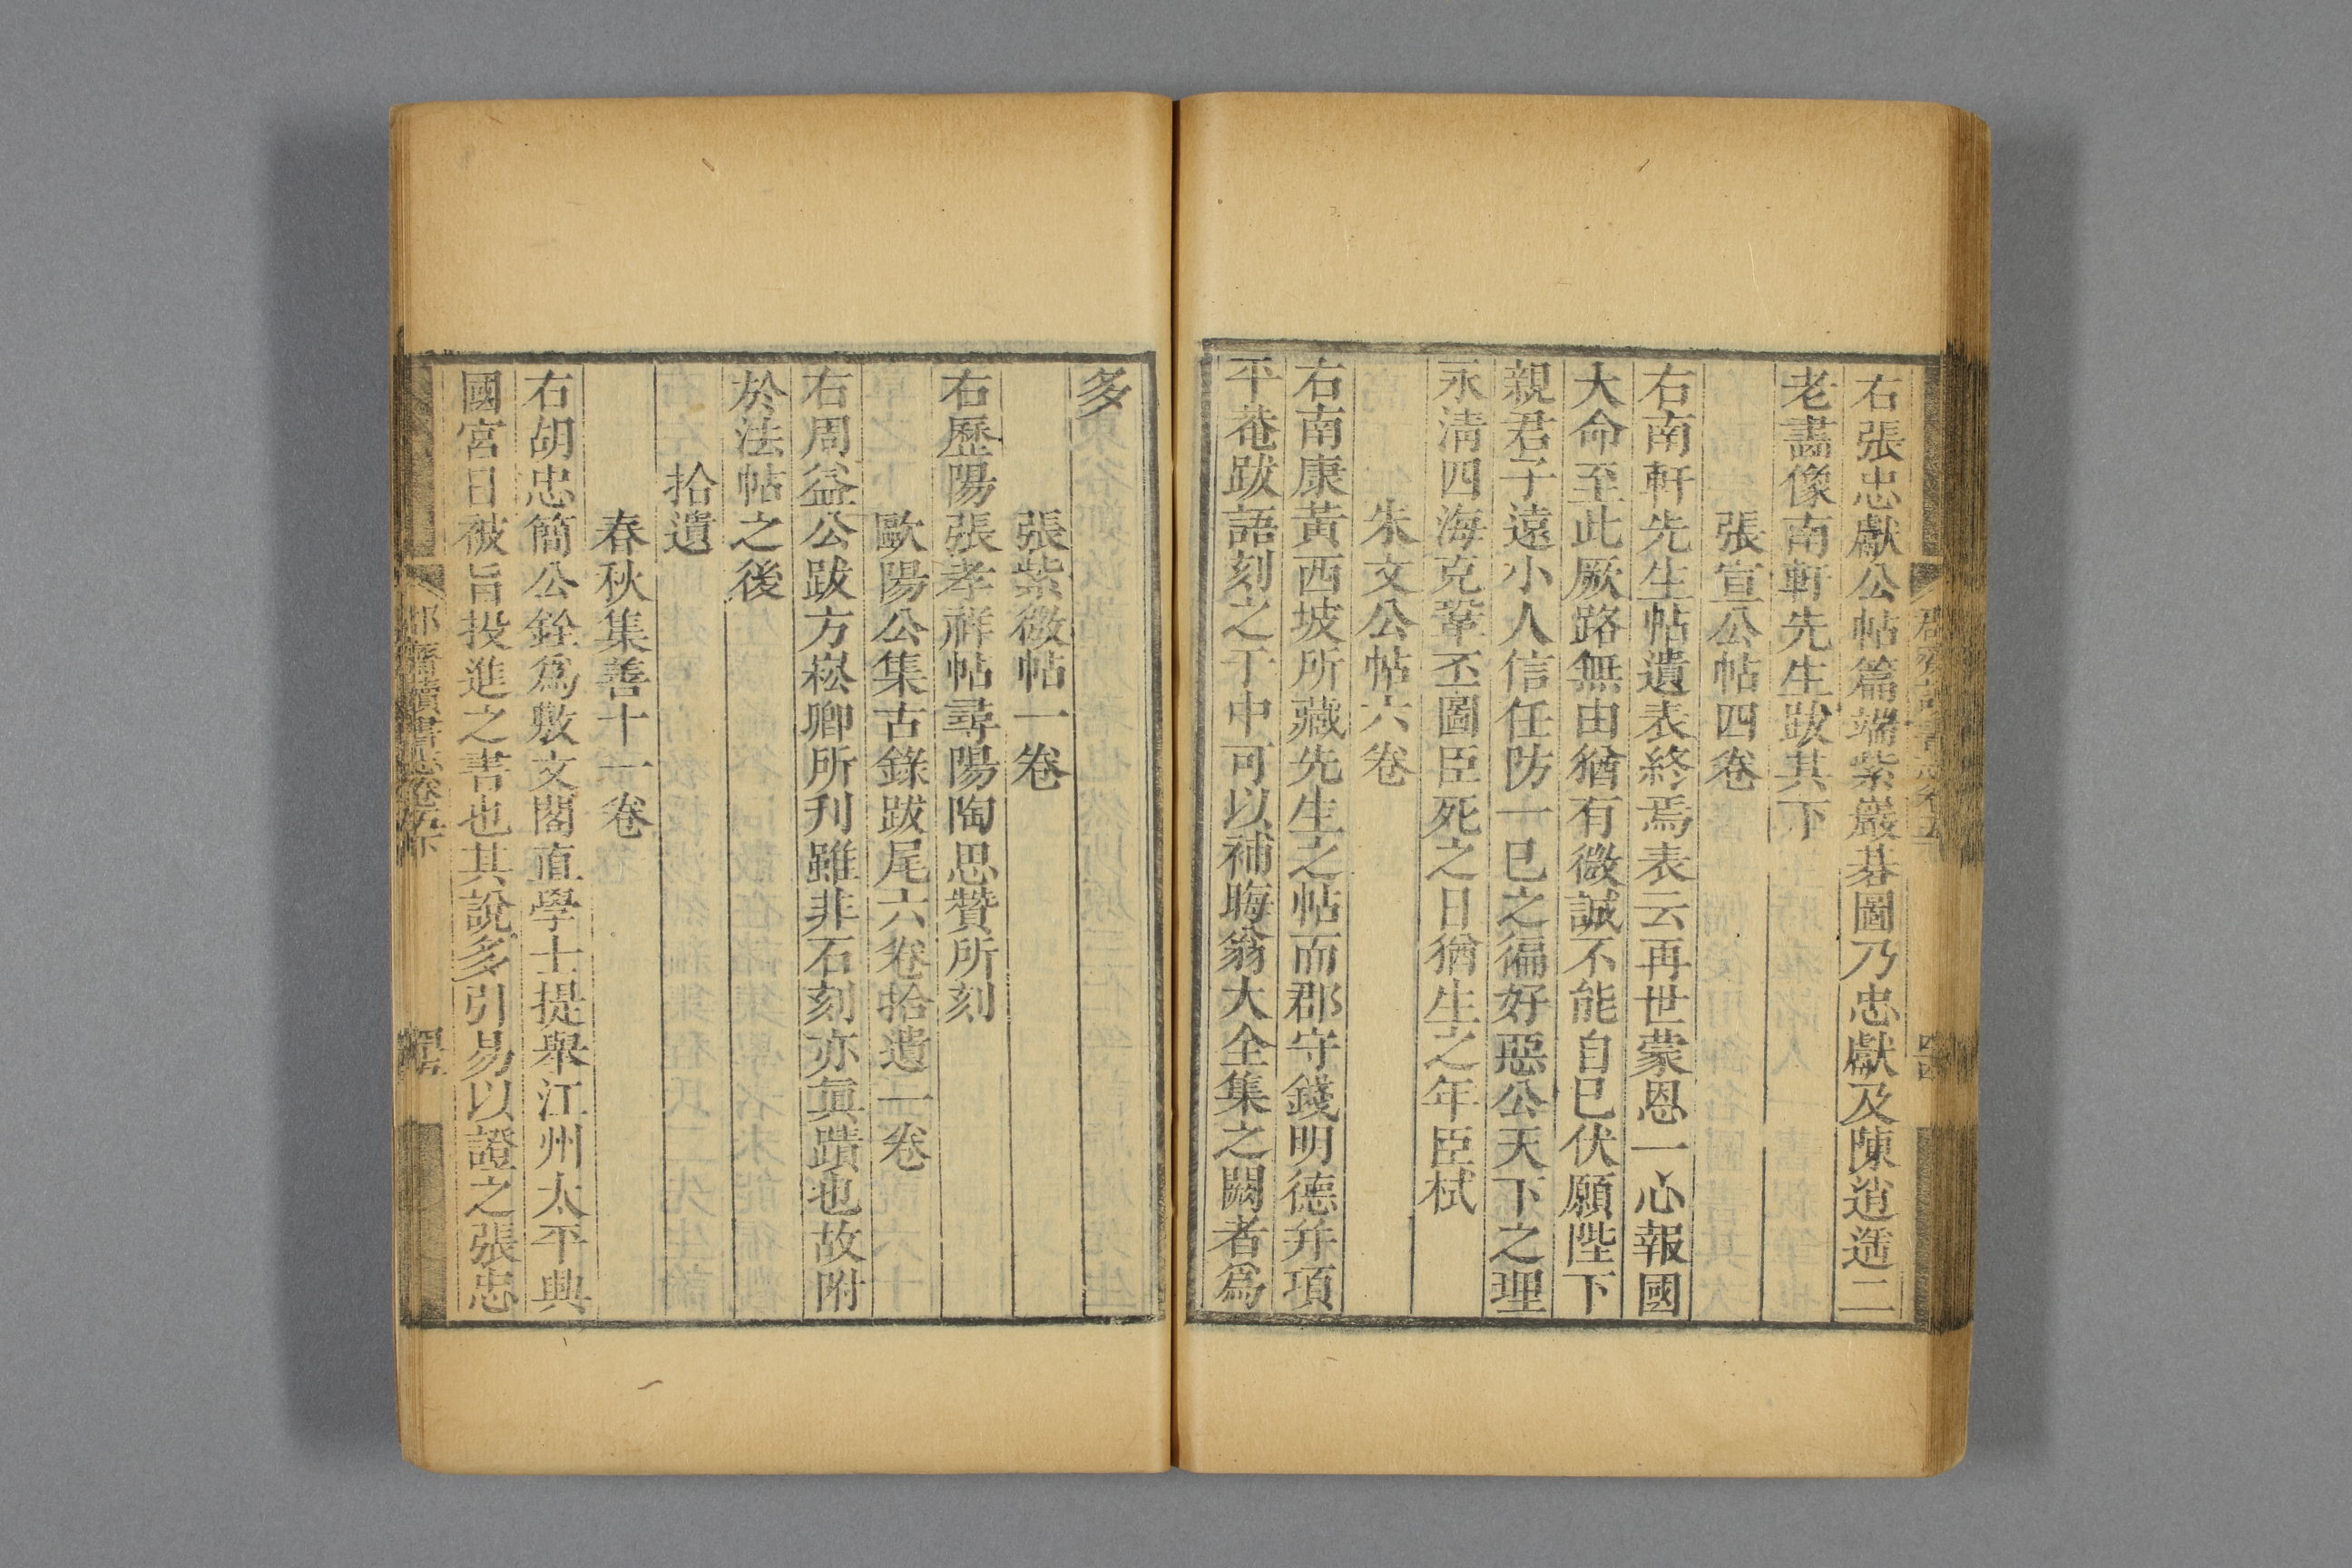 右張忠獻公帖篇端紫巖碁圖乃忠獻及陳逍遥二
老畵像南軒先生跋其下
張宣公帖四卷
右南軒先生帖遺表終焉表云再世蒙恩一心報國
大命至此厥路無由猶有微誠不能自已伏願陛下
親君子遠小人信任防一已之徧好惡公天下之理
永淸四海克鞏丕圖臣死之日猶生之年臣栻
朱文公帖六卷
右南康黃西坡所藏先生之帖而郡守錢明德幷項
平菴跋語刻之于中可以補晦翁大全集之闕者爲
多
張紫微帖一卷
右歷陽張孝祥帖尋陽陶思贊所刻
歐陽公集古錄跋尾六卷拾遺一卷
右周益公跋方崧卿所刋雖非石刻亦眞蹟也故附
於法帖之後
拾遺
春秋集善十一卷
右胡忠簡公銓爲敷文閣直學士提舉江州太平興
國宮日被旨投進之書也其說多引易以證之張忠
郡齋讀書志卷五下